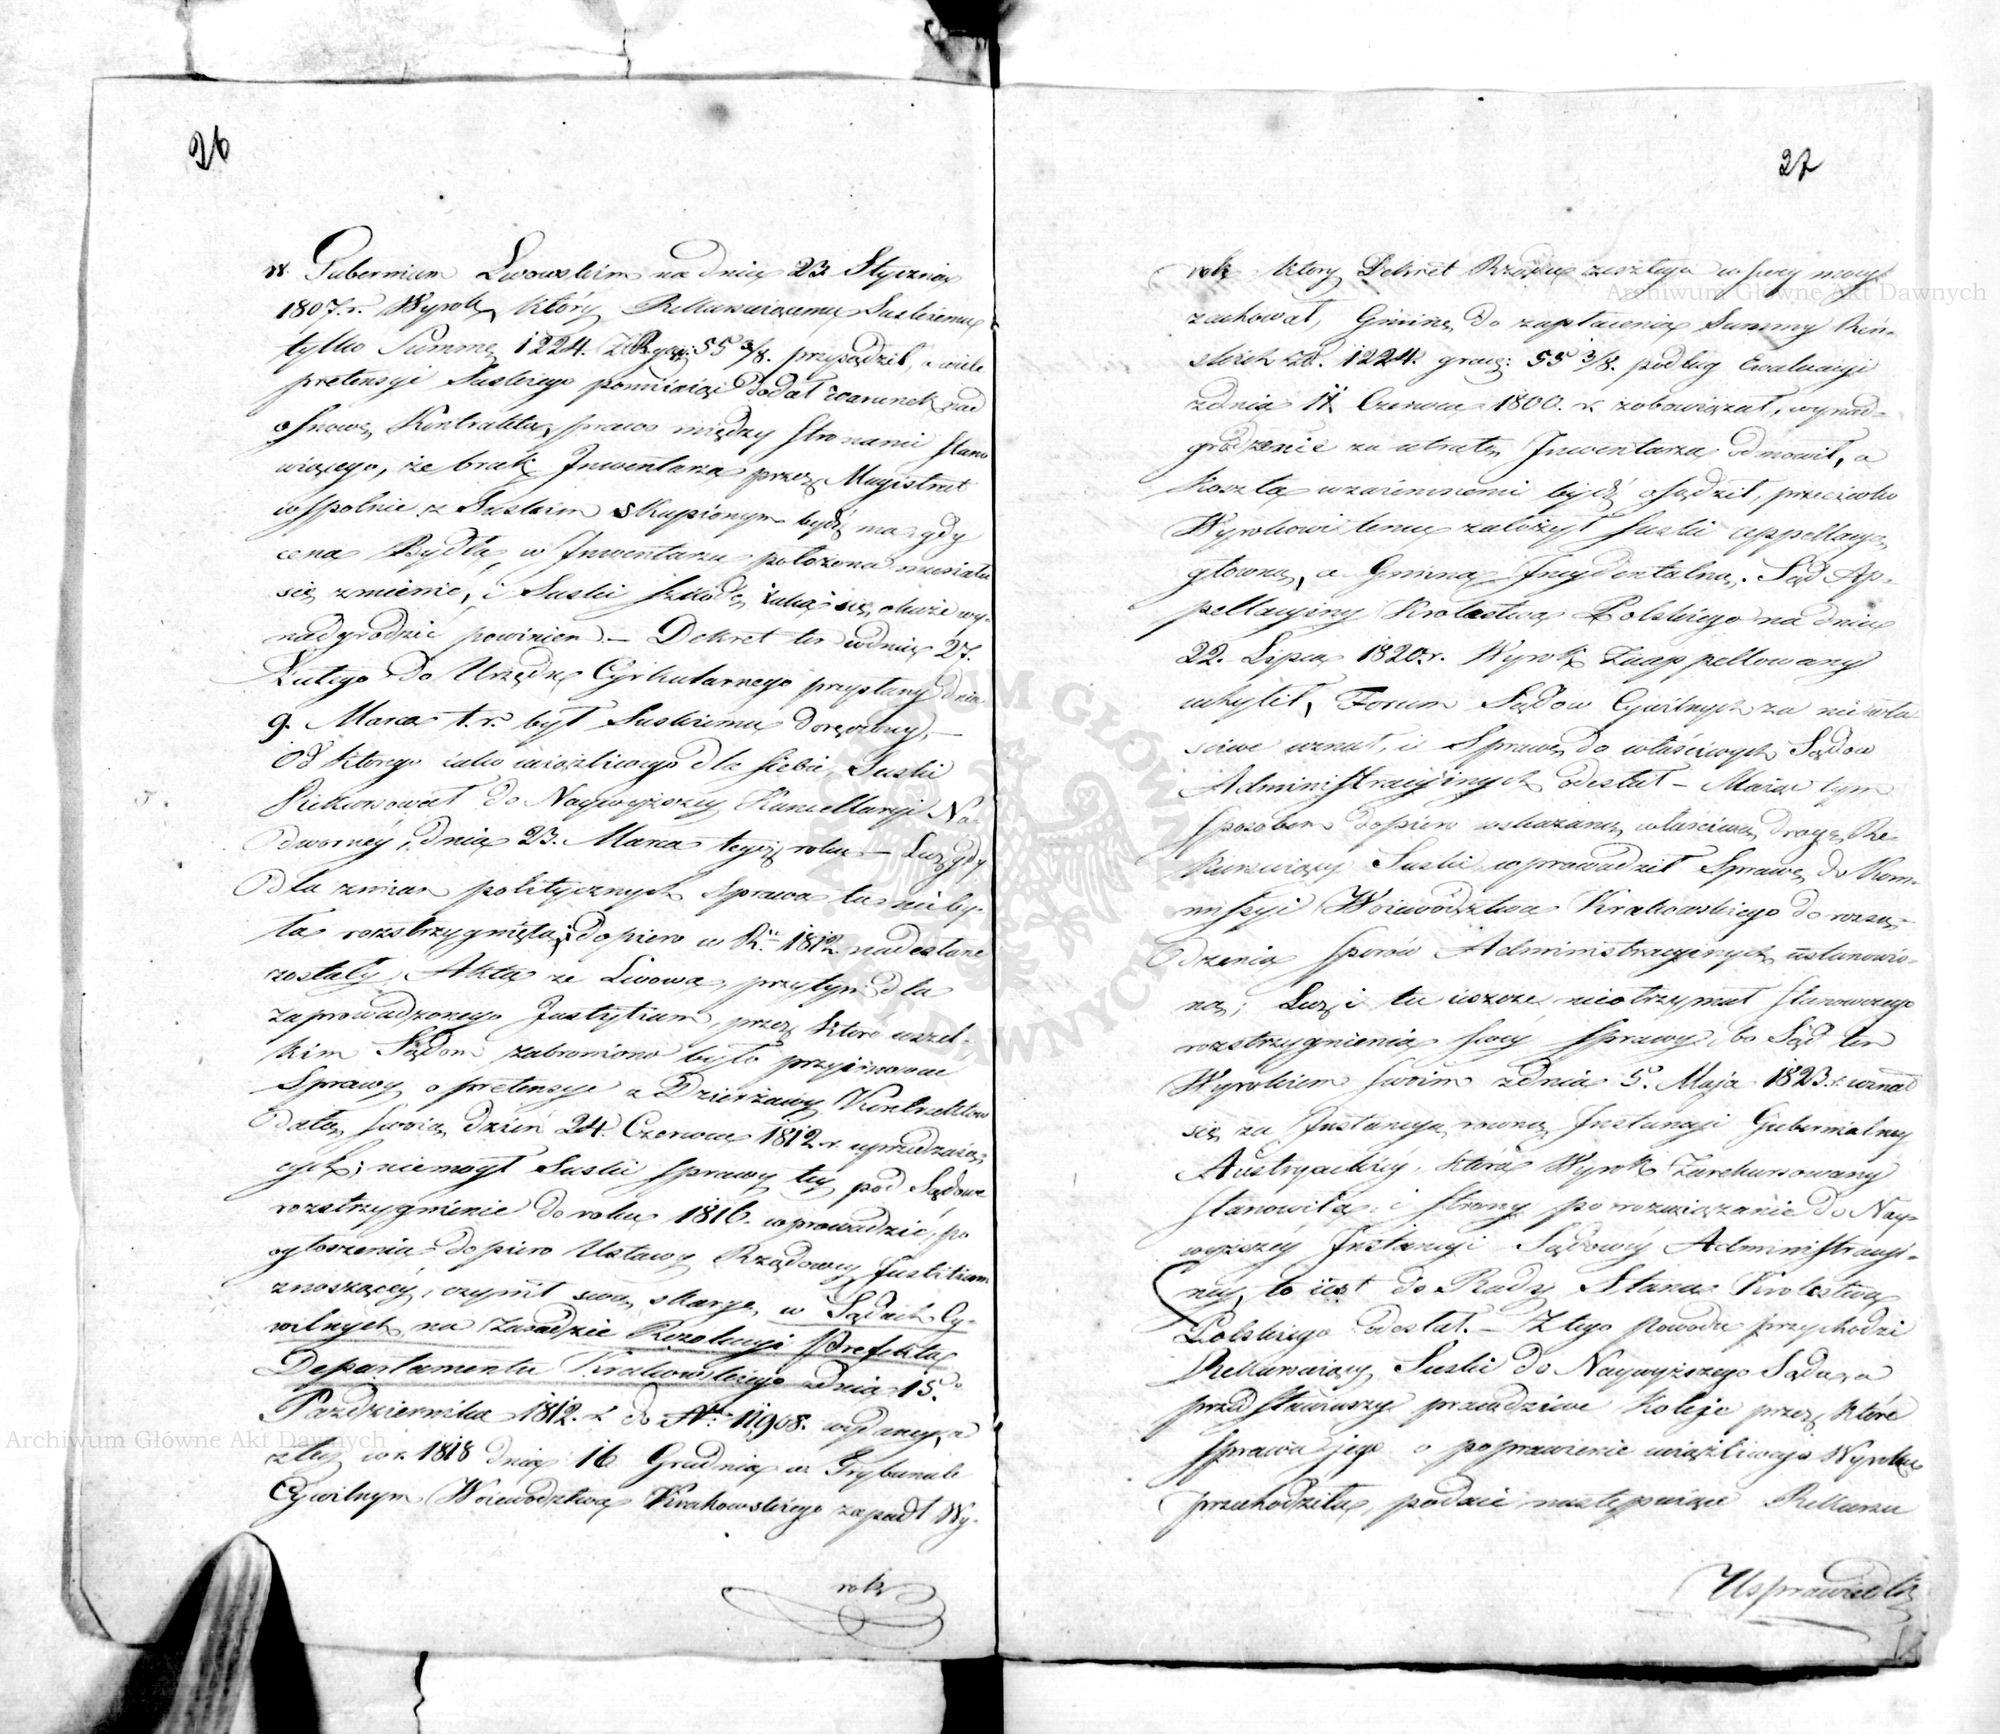 26
w. Gubernium Lwowskim na dniu 23 Stycznia
1807. r. Wyrok, który Rekurującemu Suskiemu
tylko Summę 1224. ZłR gr: 55 3/8. przysądził, a wiele
pretensyi Suskiego pomijając dodał warunek nad
osnowę Kontraktu, prawo między stronami stano
wiącego, że brak Inwentarza przez Magistrat
wspolnie z Suskim skupionym bydź ma gdy
cena Bydła, w Inwentarzu położona musiała
się zmienić, i Suski szkodę iaka się okaże wy-
nadgrodzić powinien. – Dekret ten w dniu 27.
Lutego do Urzędu Cyrkularnego przysłany dnia
9. Marca t. r. był Suskiemu doręczony, –
Od którego iako uciążliwego dla siebie, Suski
Rekurował do Naywyższey Kancellaryi Na-
dworney, dnia 23. Marca tegoż roku – Lecz gdy
dla zmian politycznych sprawa ta nie by-
ła rozstrzygnięta; dopiero w Ru 1812 nadesłane
zostały Akta ze Lwowa, przytym dla
zaprowadzonego Justytium, przez które wszel-
kim Sądom zabroniono było przyimować
Sprawy o pretensye z Dzierżawy Kontraktów
datą swoią dzień 24. Czerwca 1812 r. uprzedzaią-
cych; niemogł Suski sprawy tey pod Sądowe
rozstrzygnienie do roku 1816. wprowadzić, po
ogłoszeniu dopiero Ustawy Rządowey Justitium
znoszącéy, czynił swą skargę w Sądach Cy-
wilnych na zasadzie Rezolucyi Prefekta
Departamentu Krakowskiego dnia 15.
Października 1812. r. do Nru 11908. wydaney, a
ztąd w r. 1818 dnia 16 Grudnia w Trybunale
Cywilnym Woiewodztwa Krakowskiego zapadł Wy-
rok
27
rok który Dekret Rządu zeszłego w swey mocy
zachował, Gminę do zapłacenia Summy Reń-
skich zł. 1224. grac: 55 3/8. podług Ewaluacyi
z dnia 11 Czerwca 1800. r. zobowiązał, wynad-
grodzenie za utratę Inwentarza odmówił, a
koszta wzaiemnemi bydź osądził, przeciwko
Wyrokowi temu założył Suski appellacyą
główną, a Gmina Incydentalną. Sąd Ap-
pellacyiny Krolestwa Polskiego na dniu
22. Lipca 1820. r. Wyrok Zaappellowany
uchylił, Forum Sądow Cywilnych za niewła-
sciwe uznał, i Sprawę do właściwych Sądow
Administracyinych odesłał – Maiąc tym
sposobem dopiero wskazaną właściwą drogę Re-
kuruiący Suski, wprowadził Sprawę do Kom-
missyi Woiewództwa Krakowskiego do rozsą-
dzenia sporów Administracyinych ustanowio-
ną; Lecz i tu ieszcze nieotrzymał stanowczego
rozstrzygnienia swey sprawy, bo Sąd ten
Wyrokiem swoim z dnia 5. Maja 1823. r. uznał
się za Instancyą równą Instancyi Gubernialney
Austryackiéy, która Wyrok Zarekurowany
stanowiła, i strony po rozwiązanie do Nay-
wyższéy Instancyi Sądowéy Administracyi-
ney, to iest do Rady Stanu Krolestwa
Polskiego odesłał. – Z tego powodu przychodzi
Rekuruiący Suski do Naywyższego Sądu, a
przedstawiwszy prawdziwe koleje przez które
sprawa jego o poprawienie uciążliwego Wyroku
przechodziła, podaie następuiące Rekursu
Usprawiedli
Archiwum Główne Akt Dawnych
Archiwum Główne Akt Dawnych
ARCHIWUM GŁÓWNE AKT DAWNYCH